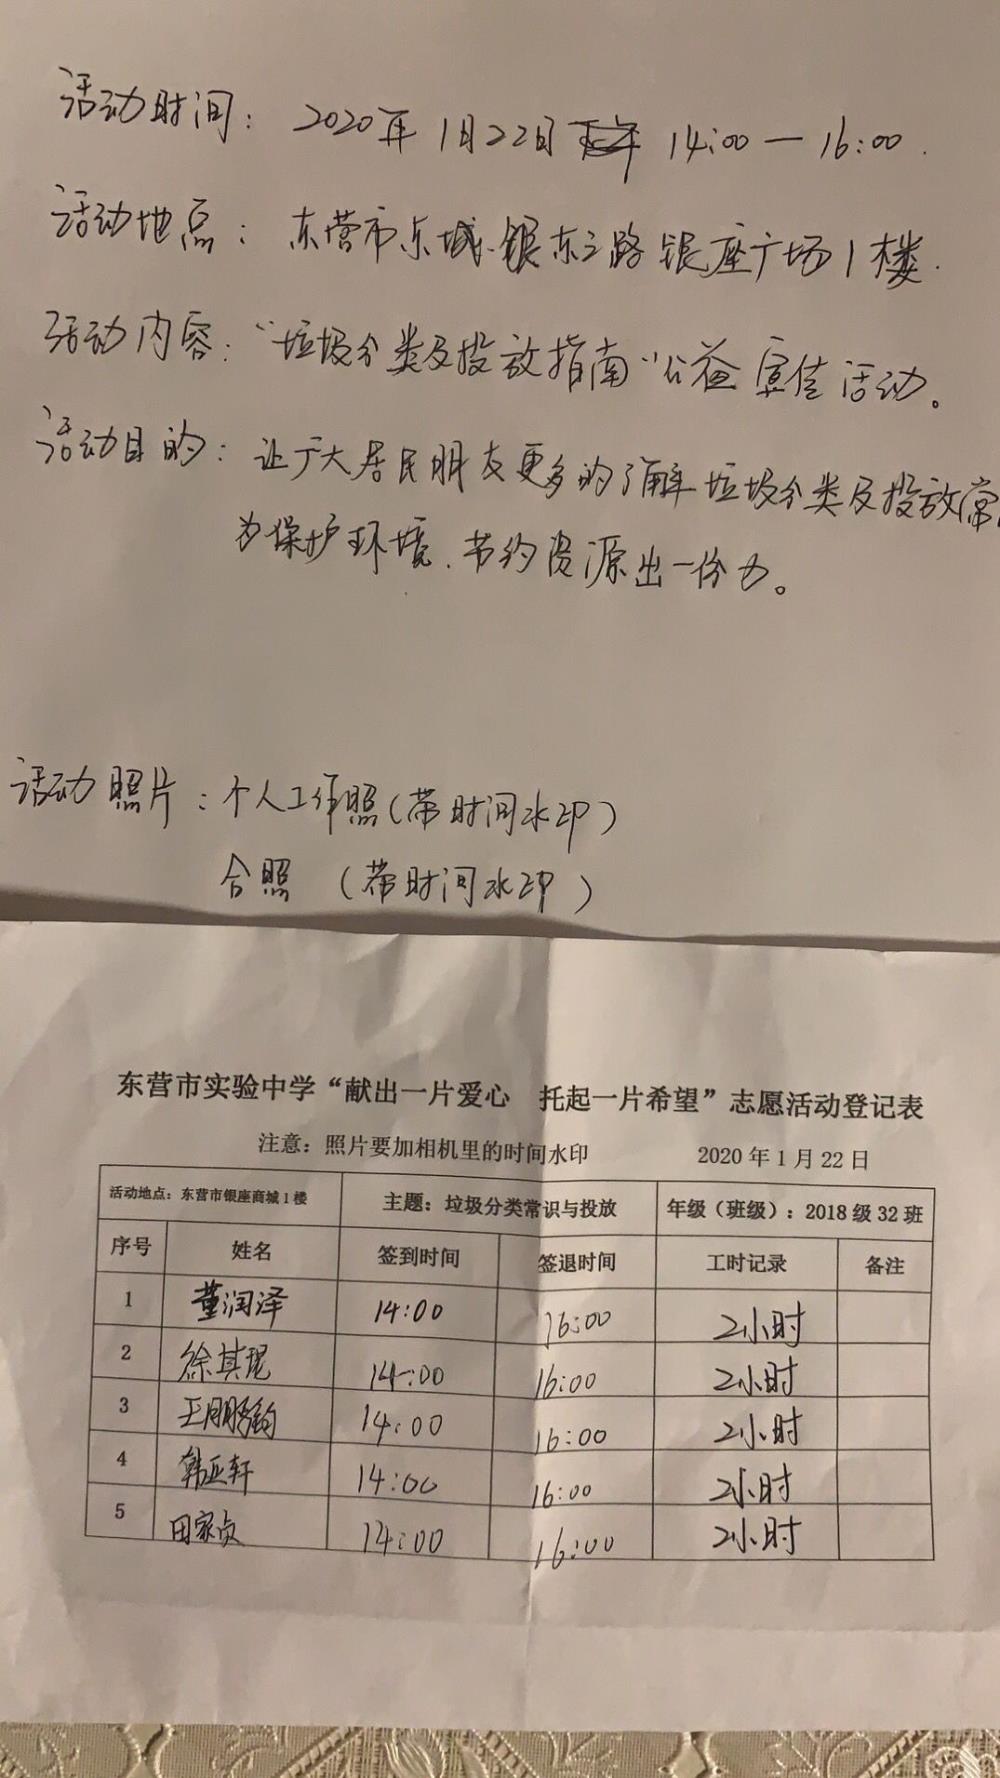 活动时间：2020年1月22日 14:00—16:00.
活动地点：东营市东城.银东三路银座广场1楼.
活动内容：“垃圾分类及投放指南”公益宣传活动。
活动目的：让广大居民朋友更多的了解垃圾分类及投放常
为保护环境.节约资源出一份力。
活动照片：个人工作照(带时间水印)
合照 (带时间水印)
东营市实验中学“献出一片爱心 托起一片希望”志愿活动登记表
注意：照片要加相机里的时间水印 2020年1月22日
活动地点：东营市银座商城1楼 主题：垃圾分类常识与投放 年级（班级）：2018级32班
序号 姓名 签到时间 签退时间 工时记录 备注
1 董润泽 14:00 16:00 2小时
2 徐其琨 14:00 16:00 2小时
3 王鹏钧 14:00 16:00 2小时
4 韩亚轩 14:00 16:00 2小时
5 田家贞 14:00 16:00 2小时